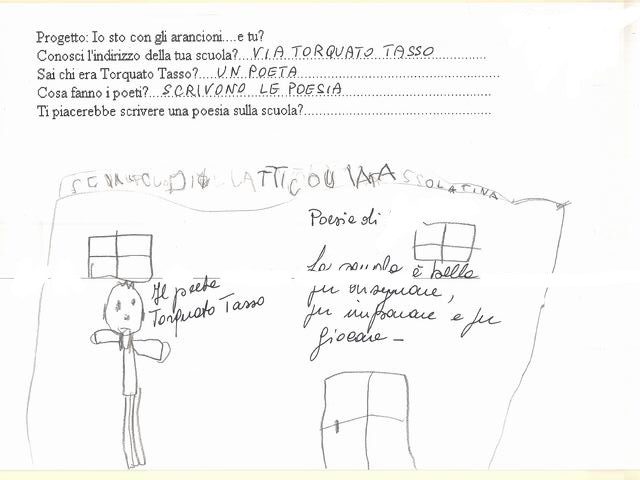 Progetto: Io sto con gli arancioni....e tu?
Conosci l'indirizzo della tua scuola?....VIA TORQUATO TASSO
Sai chi era Torquato Tasso?....UN POETA
Cosa fanno i poeti?....SCRIVONO LE POESIA
Ti piacerebbe scrivere una poesia sulla scuola?
Poesie di
Il poeta
Torquato Tasso
La scuola è bella
per insegnare,
per imparare e per
giocare -